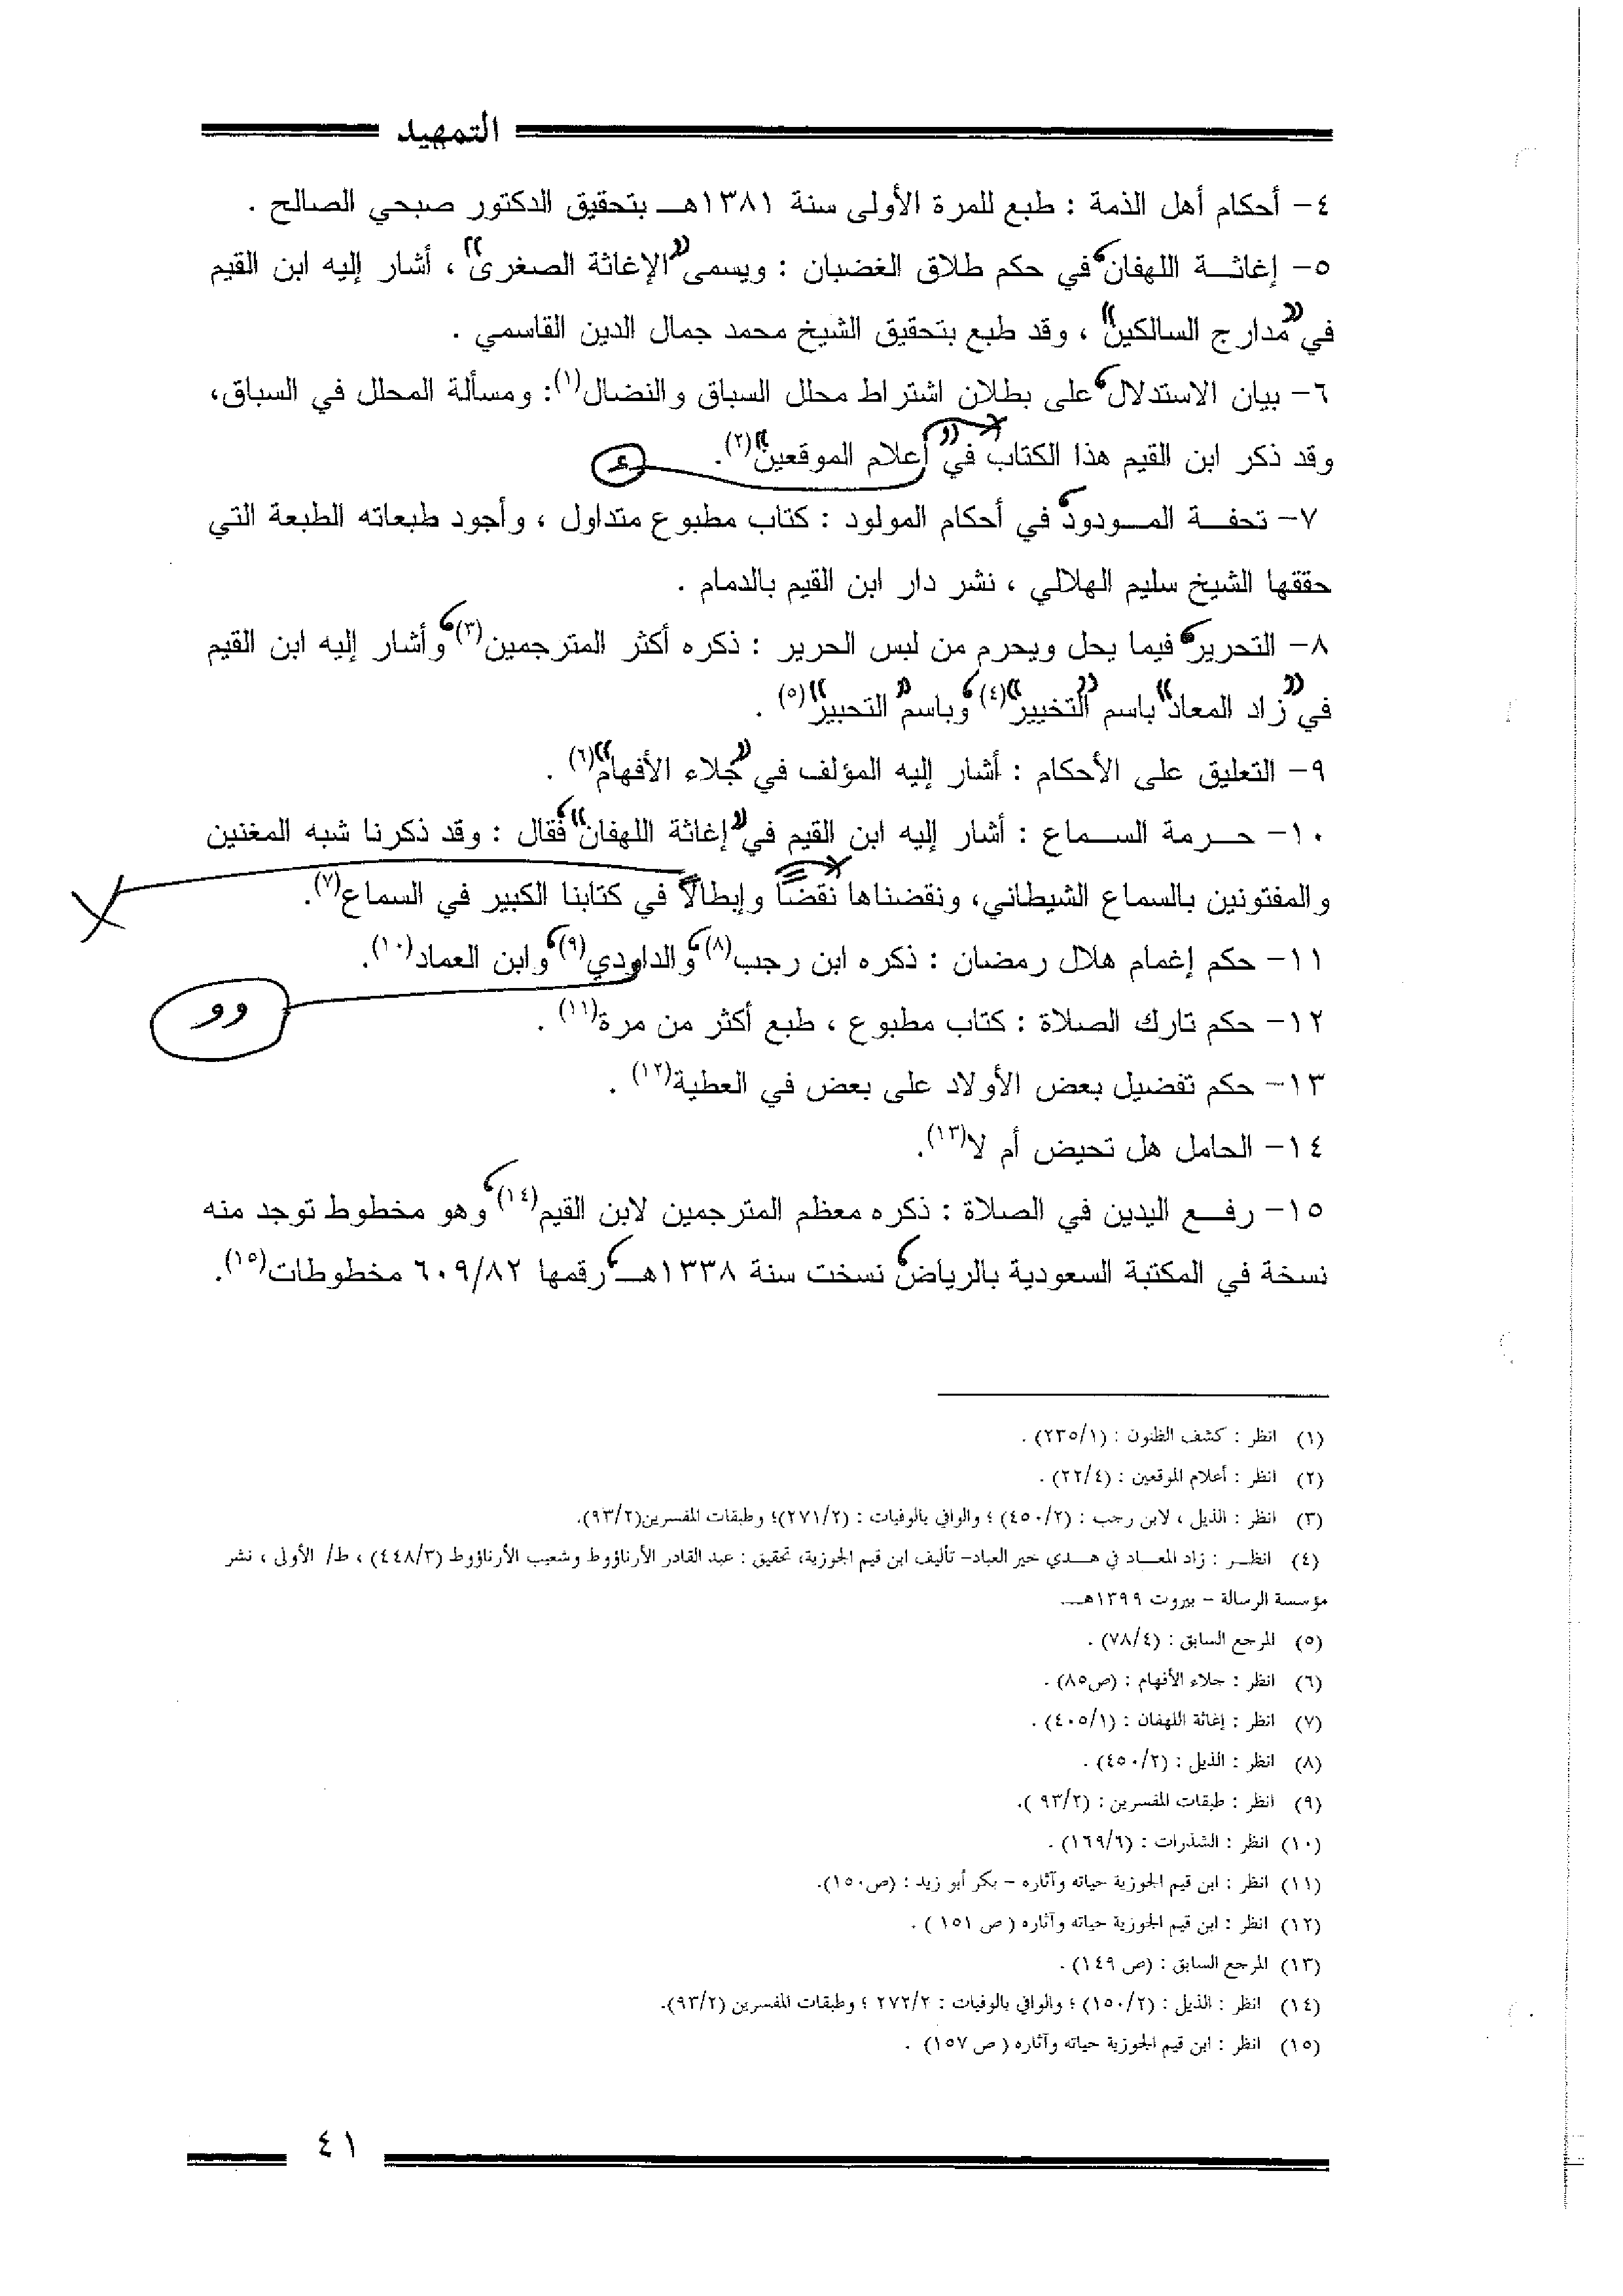 التمهيد
٤- أحكام أهل الذمة : طبع للمرة الأولى سنة ١٣٨١هـ بتحقيق الدكتور صبحي الصالح .
٥- إغاثة اللهفان، في حكم طلاق الغضبان : ويسمى «الإغاثة الصغرى» ، أشار إليه ابن القيم
في «مدارج السالكين» ، وقد طبع بتحقيق الشيخ محمد جمال الدين القاسمي .
٦- بيان الاستدلال، على بطلان اشتراط محلل السباق والنضال(١): ومسألة المحلل في السباق،
وقد ذكر ابن القيم هذا الكتاب في «أعلام الموقعين»(٢).
٧- تحفة المودود، في أحكام المولود : كتاب مطبوع متداول ، وأجود طبعاته الطبعة التي
حققها الشيخ سليم الهلالي ، نشر دار ابن القيم بالدمام .
٨- التحرير، فيما يحل ويحرم من لبس الحرير : ذكره أكثر المترجمين(٣)، وأشار إليه ابن القيم
في «زاد المعاد» باسم «التخيير»(٤)، وباسم «التحبير»(٥) .
٩- التعليق على الأحكام : أشار إليه المؤلف في «جلاء الأفهام»(٦) .
١٠- حرمة السماع : أشار إليه ابن القيم في «إغاثة اللهفان»، فقال : وقد ذكرنا شبه المغنين
والمفتونين بالسماع الشيطاني، ونقضناها نقضاً وإبطالاً في كتابنا الكبير في السماع(٧).
١١- حكم إغمام هلال رمضان : ذكره ابن رجب(٨)، والداودي(٩)، وابن العماد(١٠).
وو
١٢- حكم تارك الصلاة : كتاب مطبوع ، طبع أكثر من مرة(١١) .
١٣- حكم تفضيل بعض الأولاد على بعض في العطية(١٢) .
١٤- الحامل هل تحيض أم لا(١٣).
١٥- رفع اليدين في الصلاة : ذكره معظم المترجمين لابن القيم(١٤)، وهو مخطوط توجد منه
نسخة في المكتبة السعودية بالرياض، نسخت سنة ١٣٣٨هـ، رقمها ٦٠٩/٨٢ مخطوطات(١٥).
(١) انظر : كشف الظنون : (٢٣٥/١) .
(٢) انظر : أعلام الموقعين : (٢٢/٤) .
(٣) انظر : الذيل ، لابن رجب : (٤٥٠/٢) ؛ والوافي بالوفيات : (٢٧١/٢)؛ وطبقات المفسرين(٩٣/٢).
(٤) انظر : زاد المعاد في هدي خير العباد- تأليف ابن قيم الجوزية، تحقيق : عبد القادر الأرناؤوط وشعيب الأرناؤوط (٤٤٨/٣) ، ط/ الأولى ، نشر
مؤسسة الرسالة - بيروت ١٣٩٩هـ.
(٥) المرجع السابق : (٧٨/٤) .
(٦) انظر : جلاء الأفهام : (ص٨٥) .
(٧) انظر : إغاثة اللهفان : (٤٠٥/١) .
(٨) انظر : الذيل : (٤٥٠/٢) .
(٩) انظر : طبقات المفسرين : (٩٣/٢ ).
(١٠) انظر : الشذرات : (١٦٩/٦) .
(١١) انظر : ابن قيم الجوزية حياته وآثاره - بكر أبو زيد : (ص١٥٠).
(١٢) انظر : ابن قيم الجوزية حياته وآثاره ( ص ١٥١ ) .
(١٣) المرجع السابق : (ص ١٤٩) .
(١٤) انظر : الذيل : (١٥٠/٢) ؛ والوافي بالوفيات : ٢٧٢/٢ ؛ وطبقات المفسرين (٩٣/٢).
(١٥) انظر : ابن قيم الجوزية حياته وآثاره ( ص ١٥٧) .
٤١